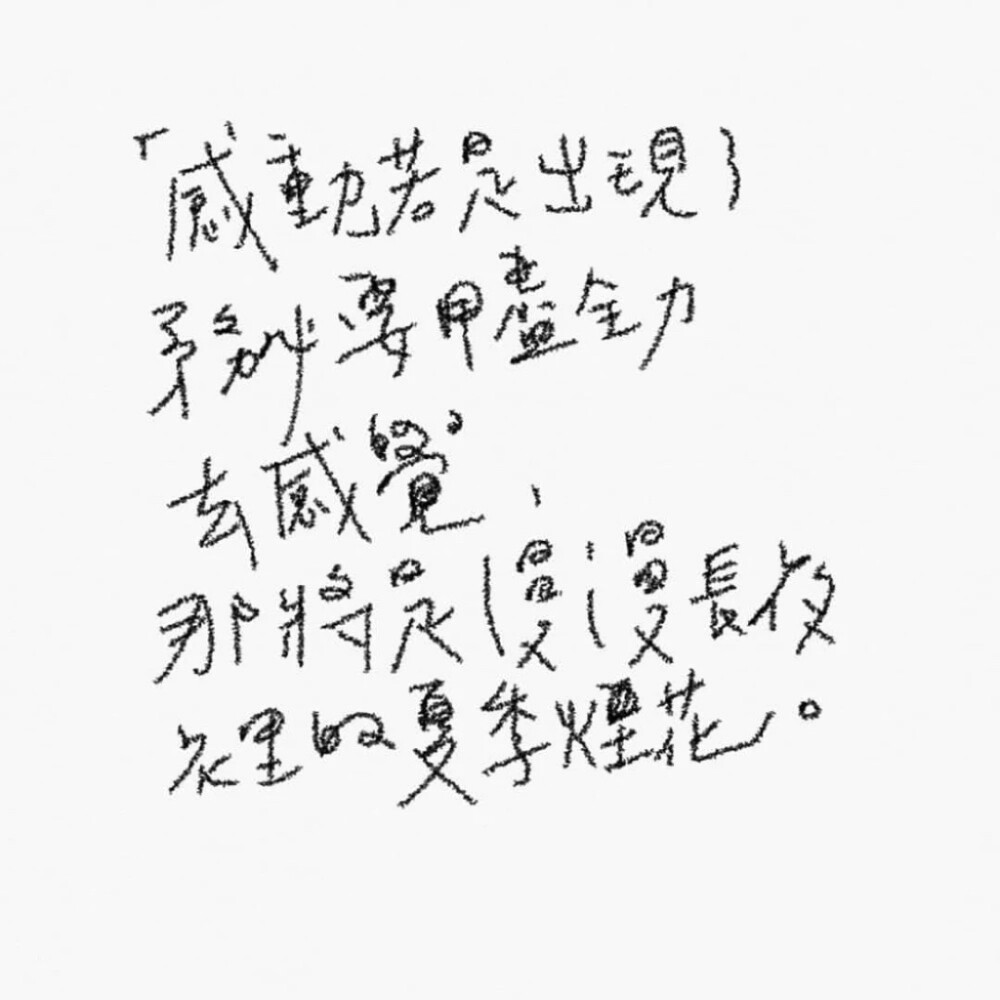 「感動若是出現了
務必要用盡全力
去感覺,
那將是漫漫長夜
裡的夏季煙花。